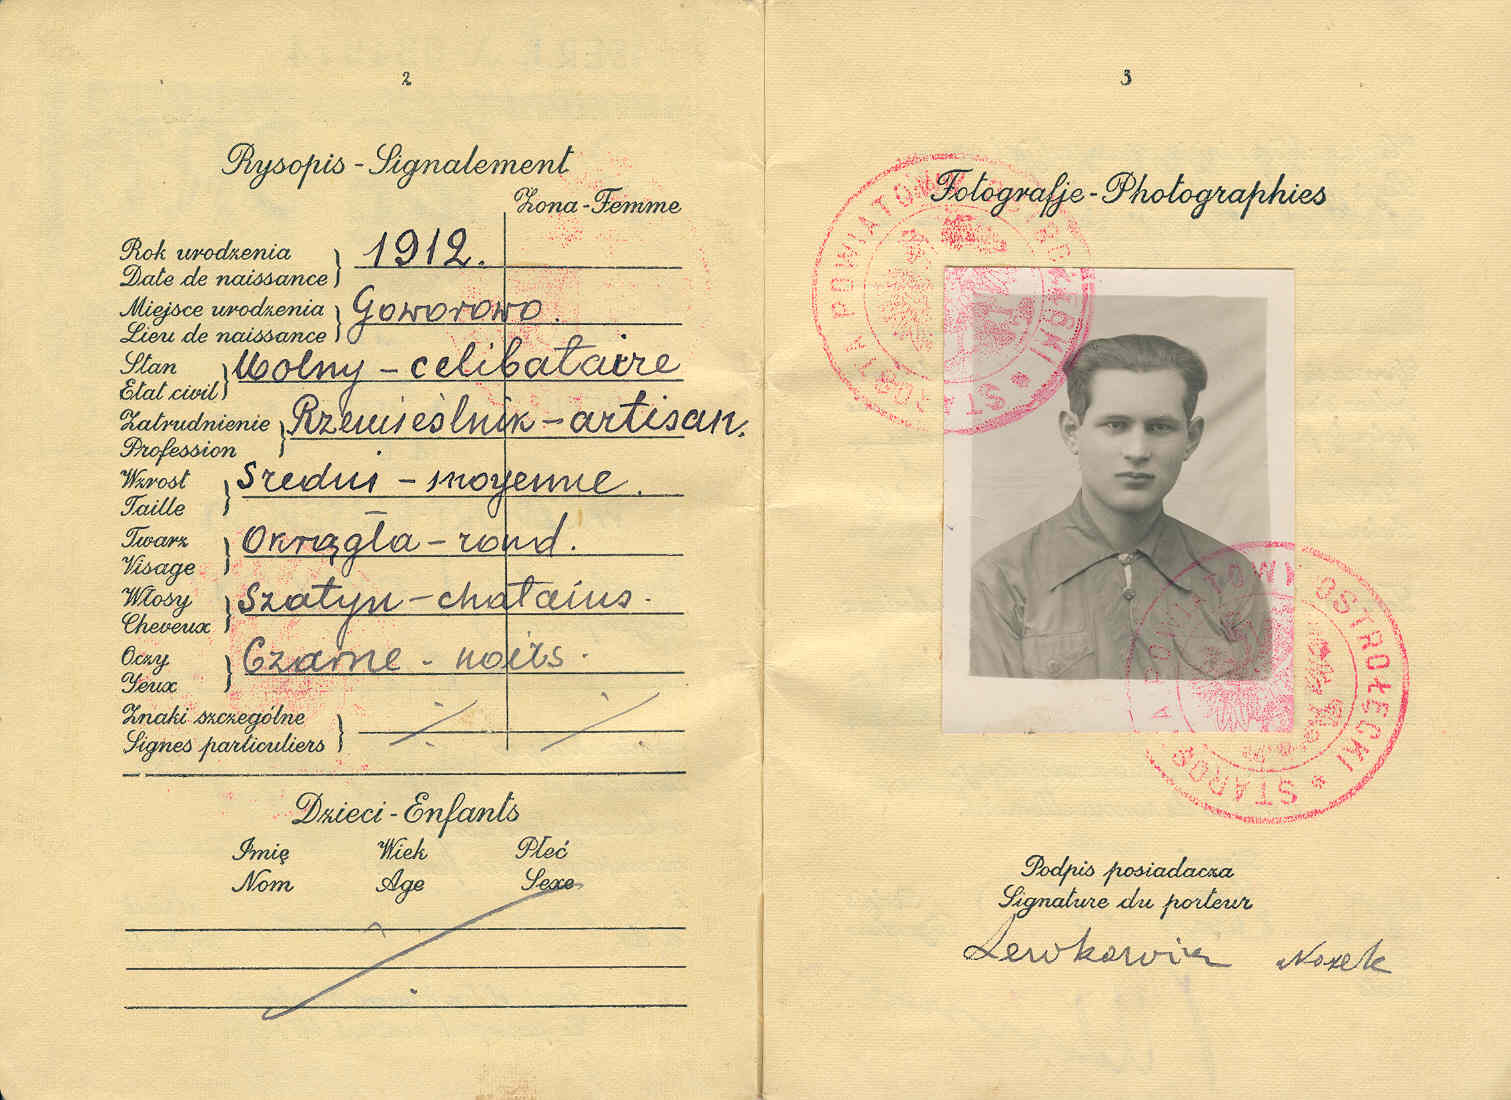 2
Rysopis - Signalement
Żona - Femme
Rok urodzenia
Date de naissance
1912.
Miejsce urodzenia
Lieu de naissance
Goworowo.
Stan
Etat civil
Wolny - celibataire
Zatrudnienie
Profession
Rzemieślnik - artisan.
Wzrost
Taille
Średni - moyenne.
Twarz
Visage
Okrągła - rond.
Włosy
Cheveux
Szatyn - chatains.
Oczy
Yeux
Czarne - noirs.
Znaki szczególne
Signes particuliers
Dzieci - Enfants
Imię Wiek Płeć
Nom Age Sexe
3
Fotografje - Photographies
STAROSTA POWIATOWY OSTROŁĘCKI *
STAROSTA POWIATOWY OSTROŁĘCKI *
Podpis posiadacza
Signature du porteur
Lewkowicz